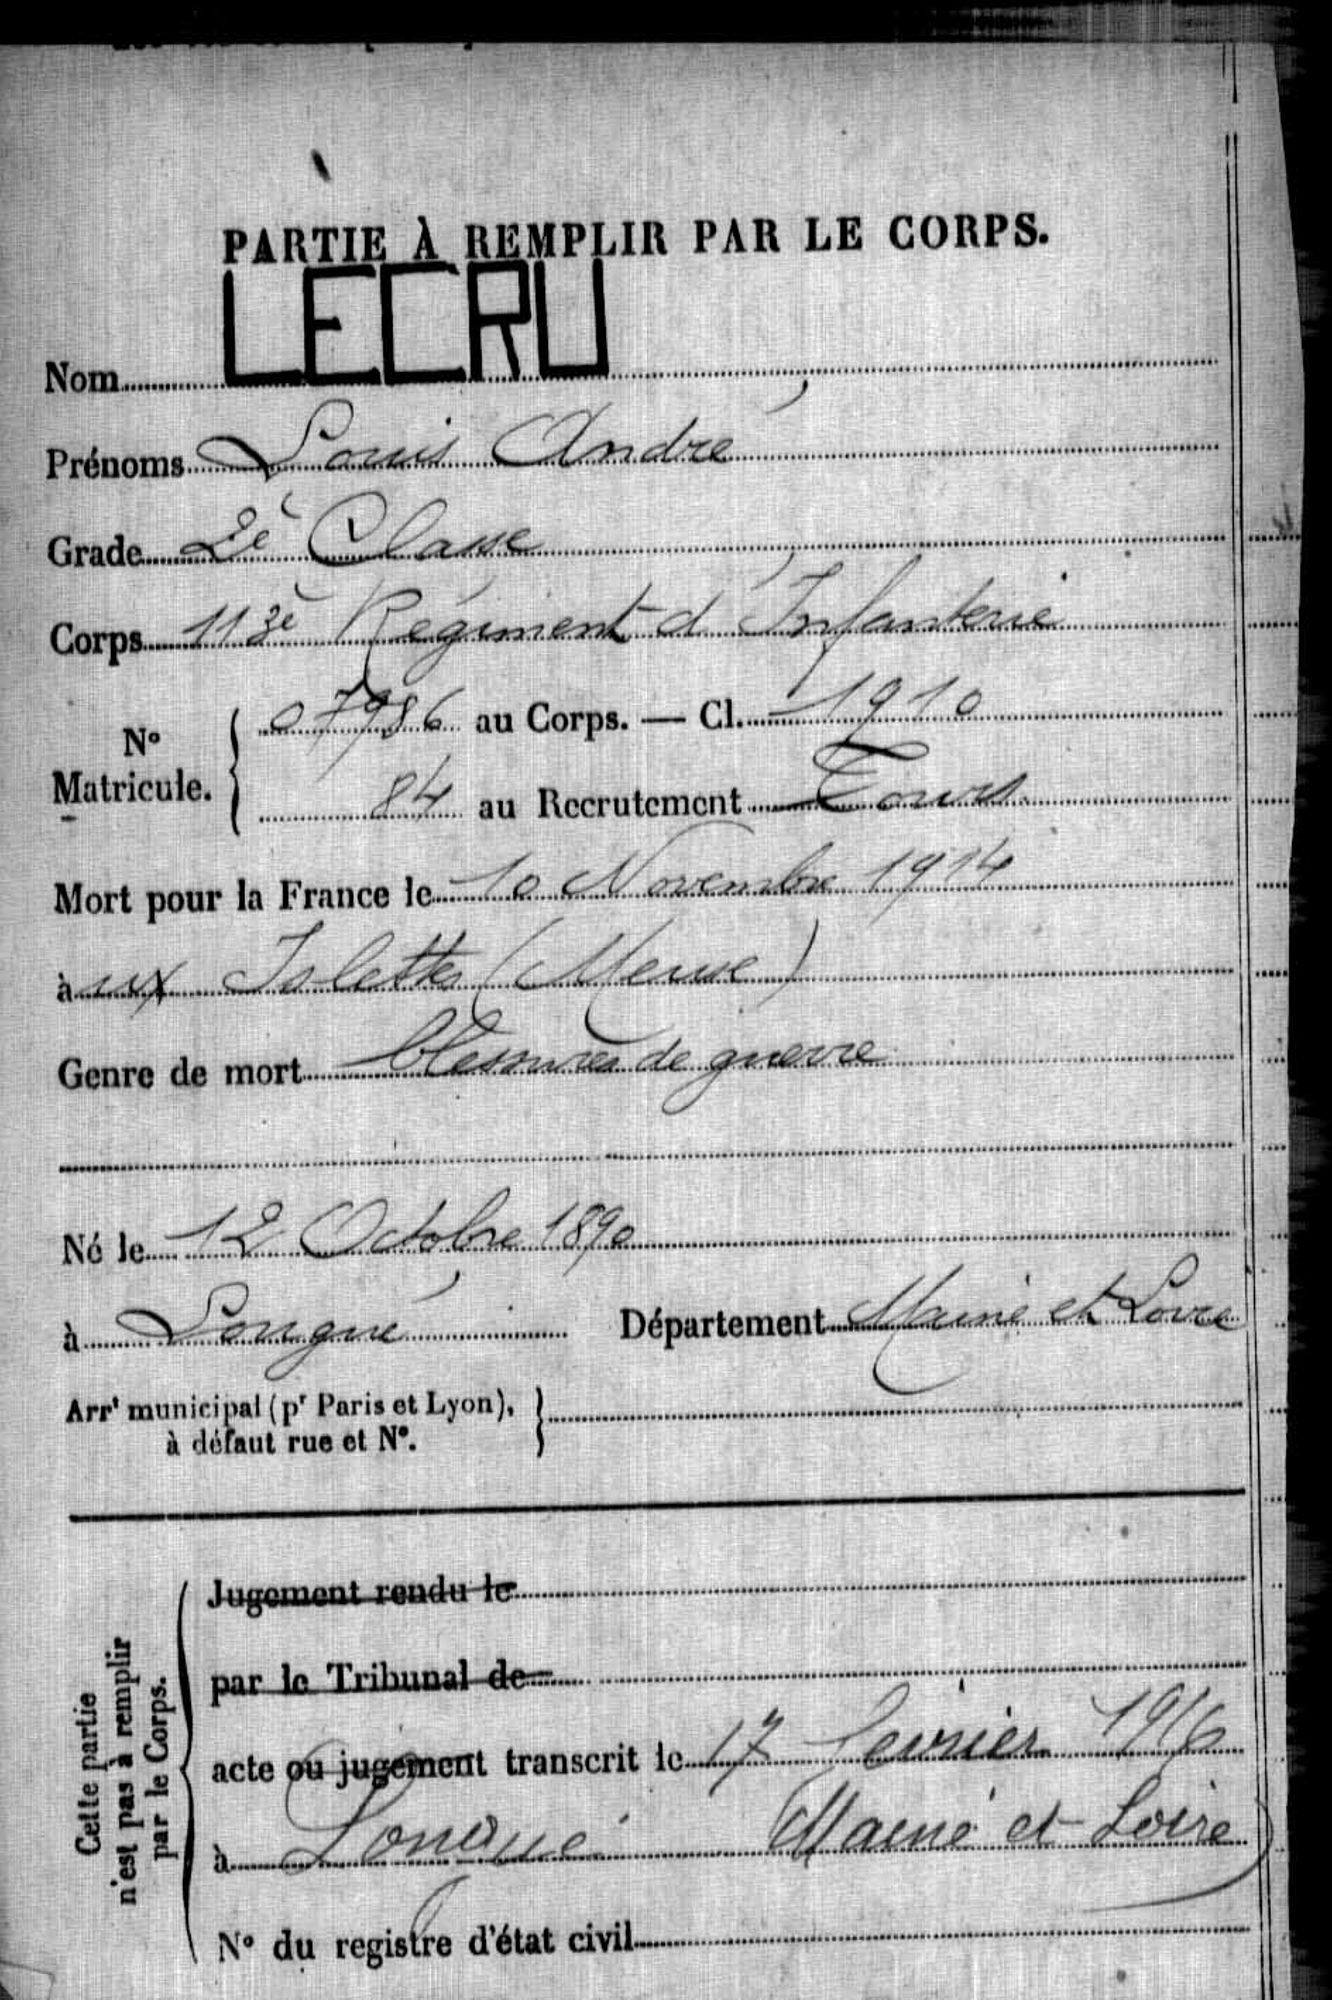 PARTIE À REMPLIR PAR LE CORPS.
Nom LECRU
Prénoms Louis André
Grade 2è Classe
Corps 113è Régiment d'Infanterie
N° Matricule. 07986 au Corps. — Cl. 1910
84 au Recrutement Tours
Mort pour la France le 10 Novembre 1914
à ux Islettes (Meuse)
Genre de mort blessures de guerre
Né le 12 Octobre 1890
à Longué Département Maine et Loire
Arrt municipal (pr Paris et Lyon),
à défaut rue et N°.
Cette partie
n'est pas à remplir
par le Corps.
Jugement rendu le
par le Tribunal de
acte ou jugement transcrit le 17 février 1916
à Longué (Maine et Loire)
N° du registre d'état civil